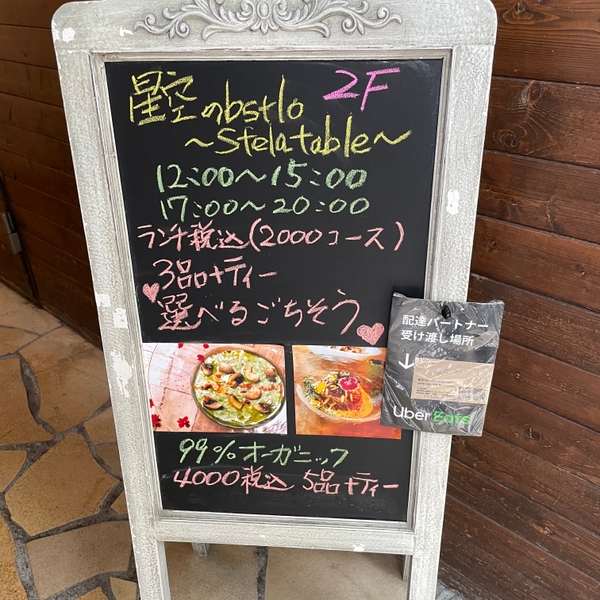 星空のbstlo 2F
~Stelatable~
12:00~15:00
17:00~20:00
ランチ税込(2000コース)
3品+ティー
選べるごちそう
配達パートナー
受け渡し場所
↓
Uber Eats
99%オーガニック
4000税込 5品+ティー